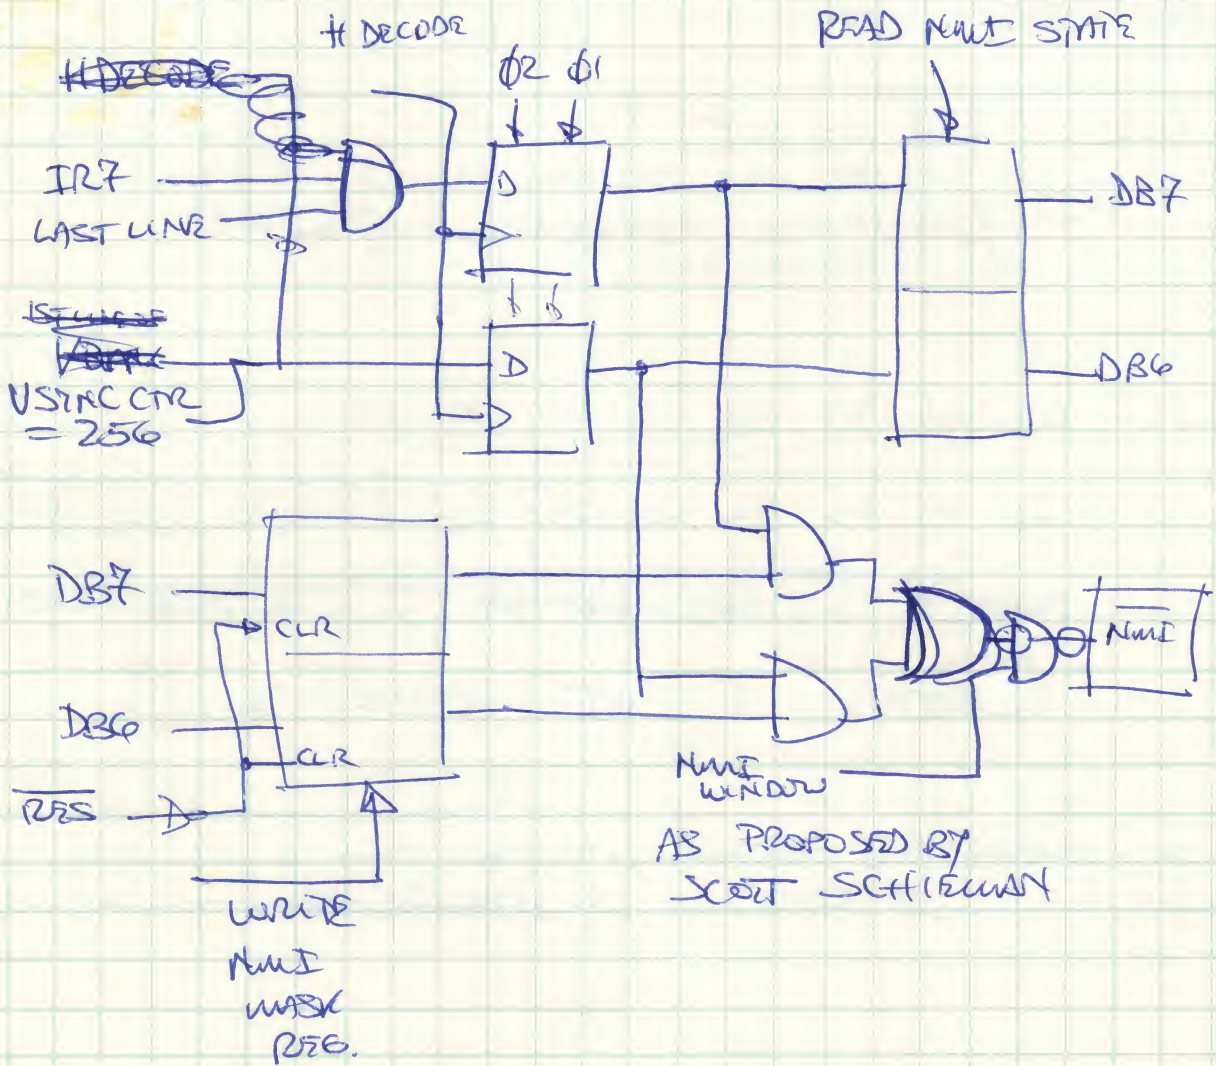 H DECODE
READ NMI STATE
H DECODE
Φ2 Φ1
IR7
LAST LINE
D
DB7
VBLANK
VSYNC CTR
= 256
D
DB6
DB7
CLR
NMI
DB6
CLR
RES
NMI
WINDOW
AS PROPOSED BY
SCOTT SCHIEMAN
WRITE
NMI
MASK
REG.